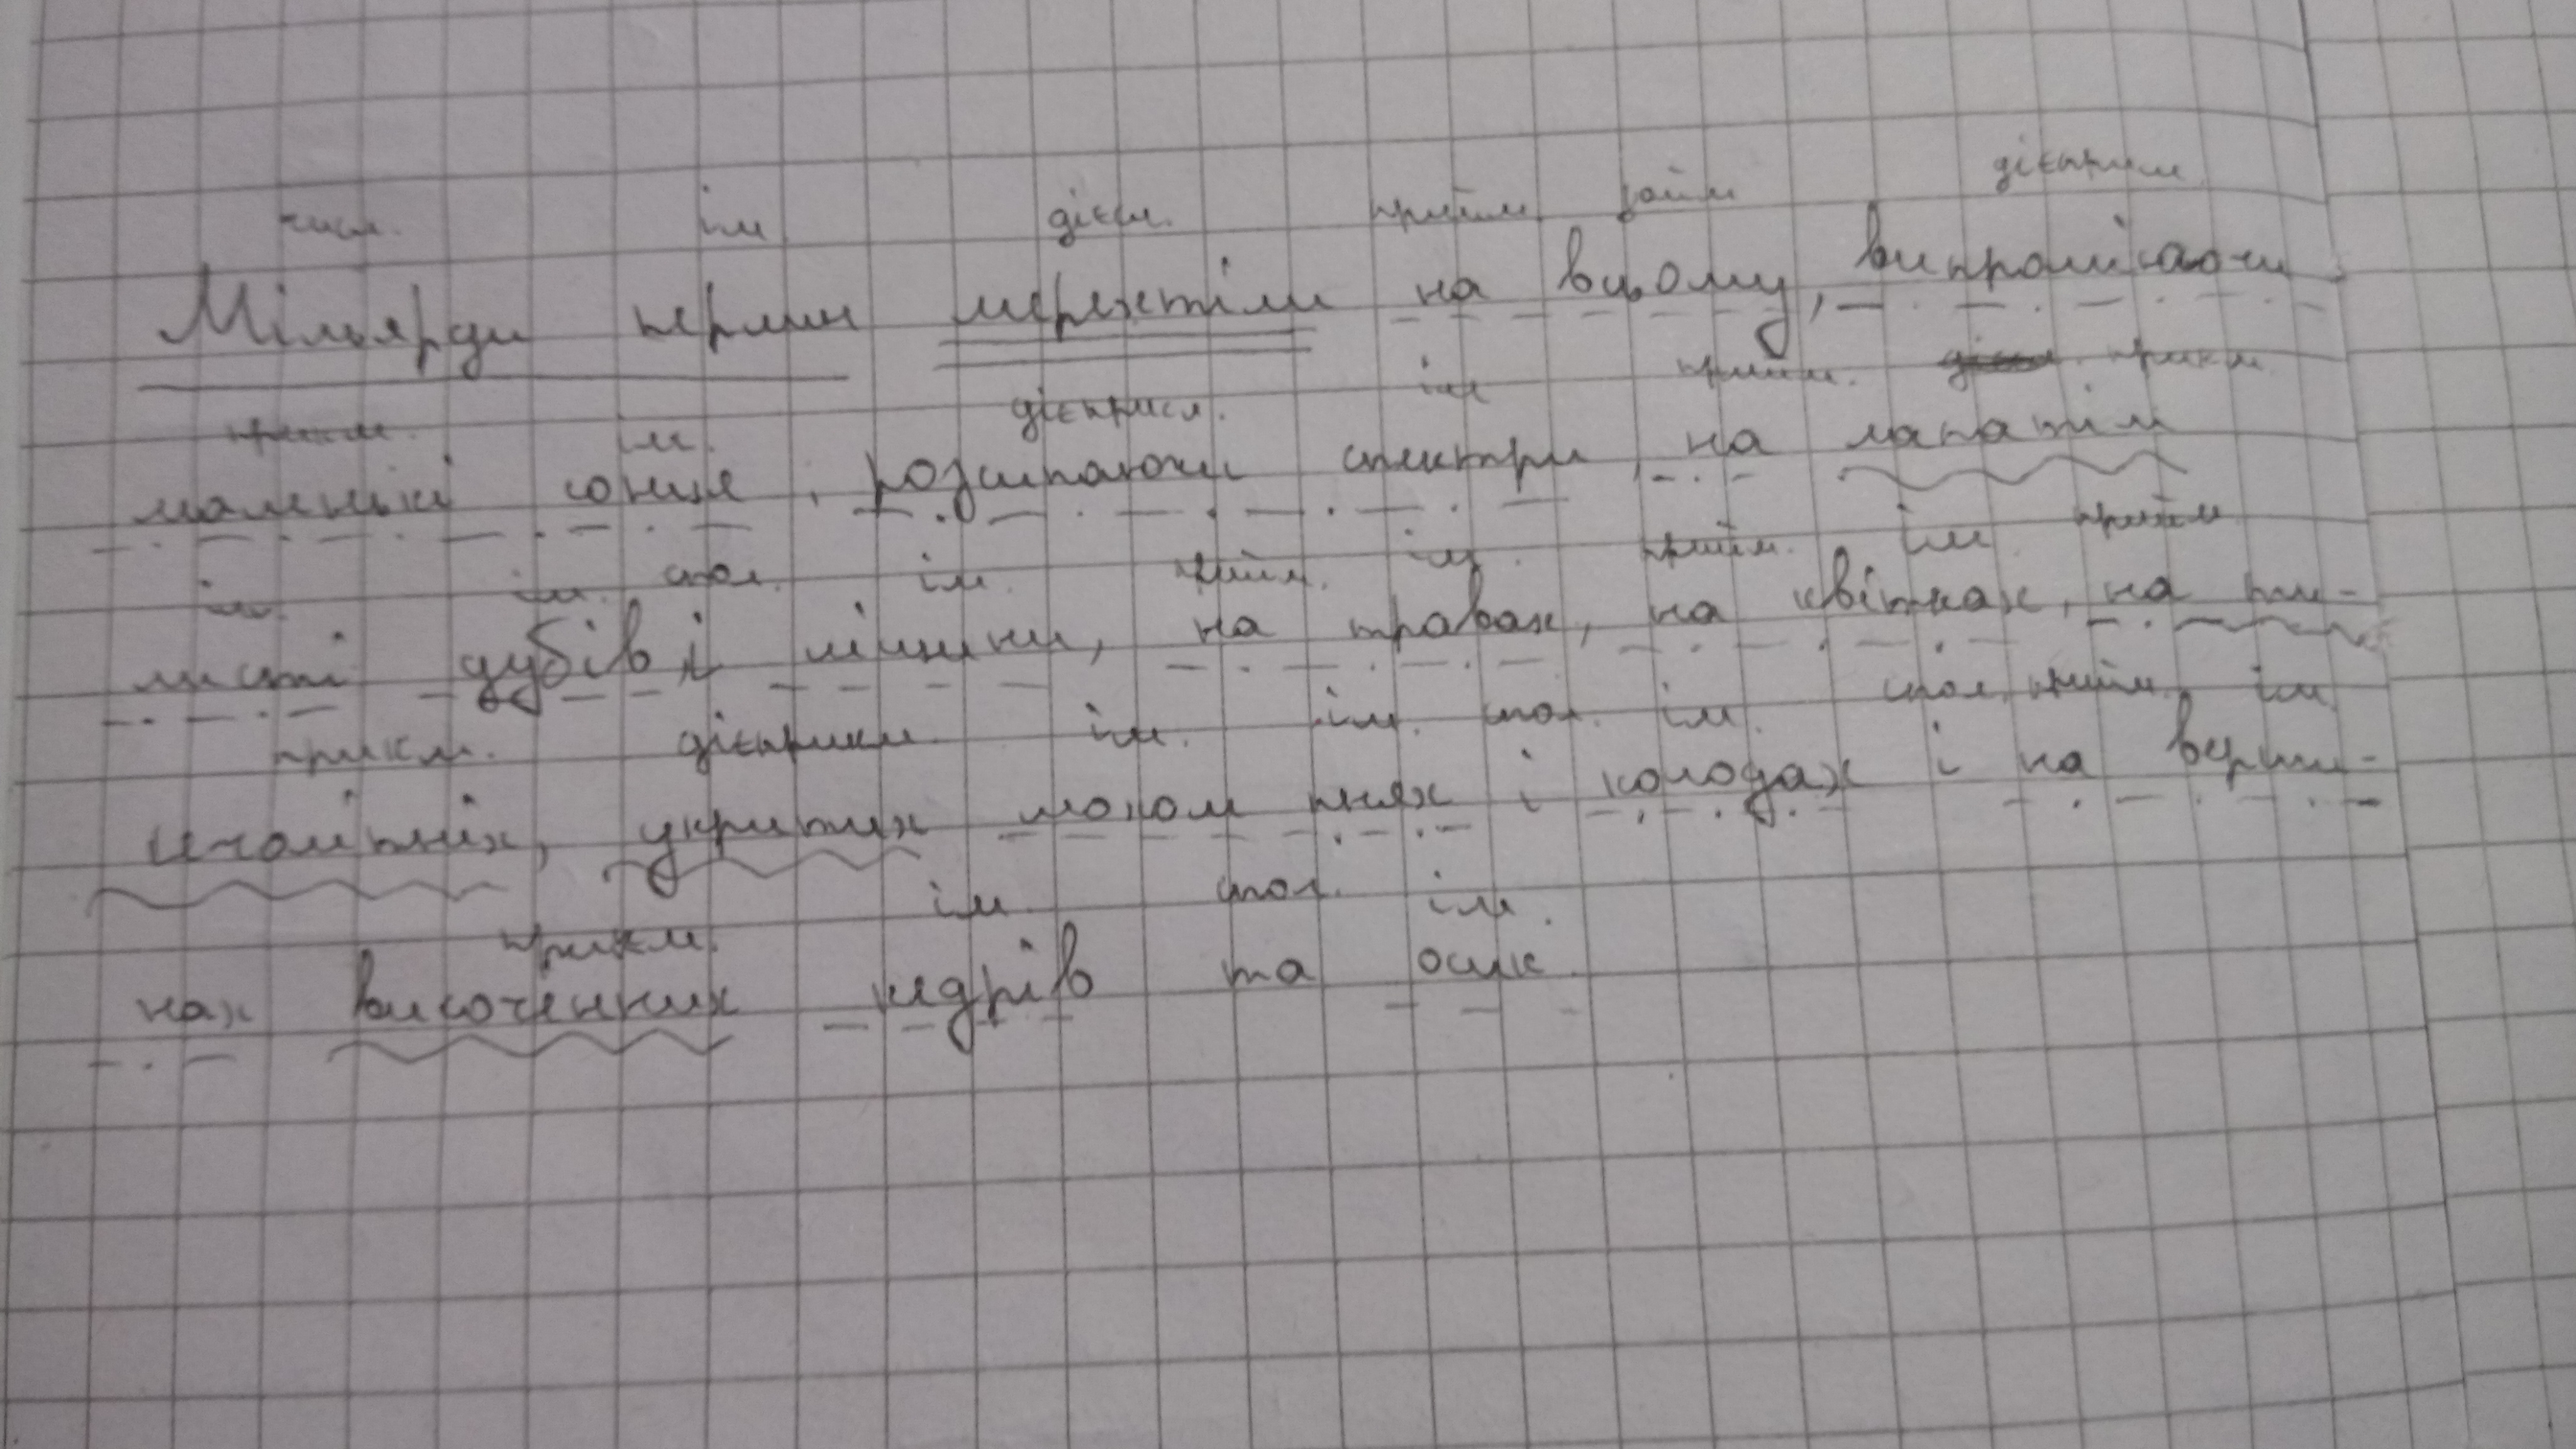 числ. ім дієсл. прийм. займ дієприсл
Мільярди перлин мерехтіли на всьому, випромінюючи
прикм. ім. дієприсл. ім прийм. прикм
маленькі сонця, розсипаючи спектри, на лапатім
ім. ім. спол. ім. прийм. ім. прийм. ім прийм
листі дубів і ліщини, на травах, на квітках, на пли-
прикм. дієприкм. ім. ім. спол. ім. спол. прийм. ім
нчастих, укритих мохом пнях і колодах і на верши-
прикм. ім спол. ім.
нах височенних кедрів та осик